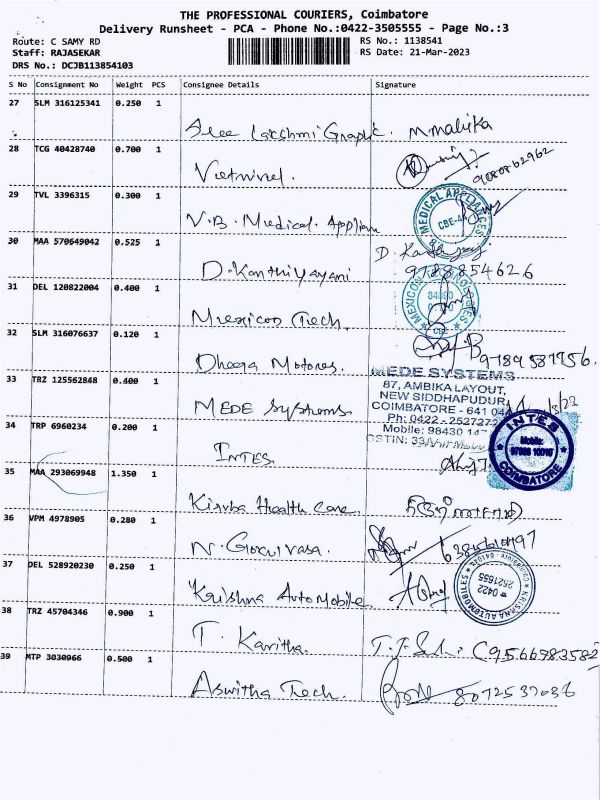 THE PROFESSIONAL COURIERS, Coimbatore
Delivery Runsheet - PCA - Phone No.:0422-3505555 - Page No.:3
Route: C SAMY RD
Staff: RAJASEKAR
DRS No.: DCJB113854103
RS No.: 1138541
RS Date: 21-Mar-2023
S No Consignment No Weight PCS Consignee Details Signature
27 SLM 316125341 0.250 1
Sree Lakshmi Graphic. M.mallika
28 TCG 40428740 0.700 1
29 TVL 3396315 0.300 1
V.B. Medical. Applian
MEDICAL APPLIANCES
30 MAA 570649042 0.525 1
D.Kanthiyayani
9788854626
31 DEL 120822004 0.400 1
Mexicon Tech.
32 SLM 316076637 0.120 1
Dheera Motores.
33 TRZ 125562848 0.400 1
MEDE Systems
MEDE SYSTEMS
87, AMBIKA LAYOUT,
NEW SIDDHAPUDUR,
COIMBATORE - 641 044
Ph: 0422 - 2527272
Mobile: 98430
GSTIN:
34 TRP 6960234 0.200 1
INTES
INTES
Mobile:
COIMBATORE
35 MAA 293069948 1.350 1
Health Care.
36 VPM 4978905 0.280 1
37 DEL 528920230 0.250 1
Krishna Automobile
KRISHNA AUTOMOBILES
0422
2521655
38 TRZ 45704346 0.900 1
T. Kavitha.
39 MTP 3030966 0.500 1
Aswitha Tech.